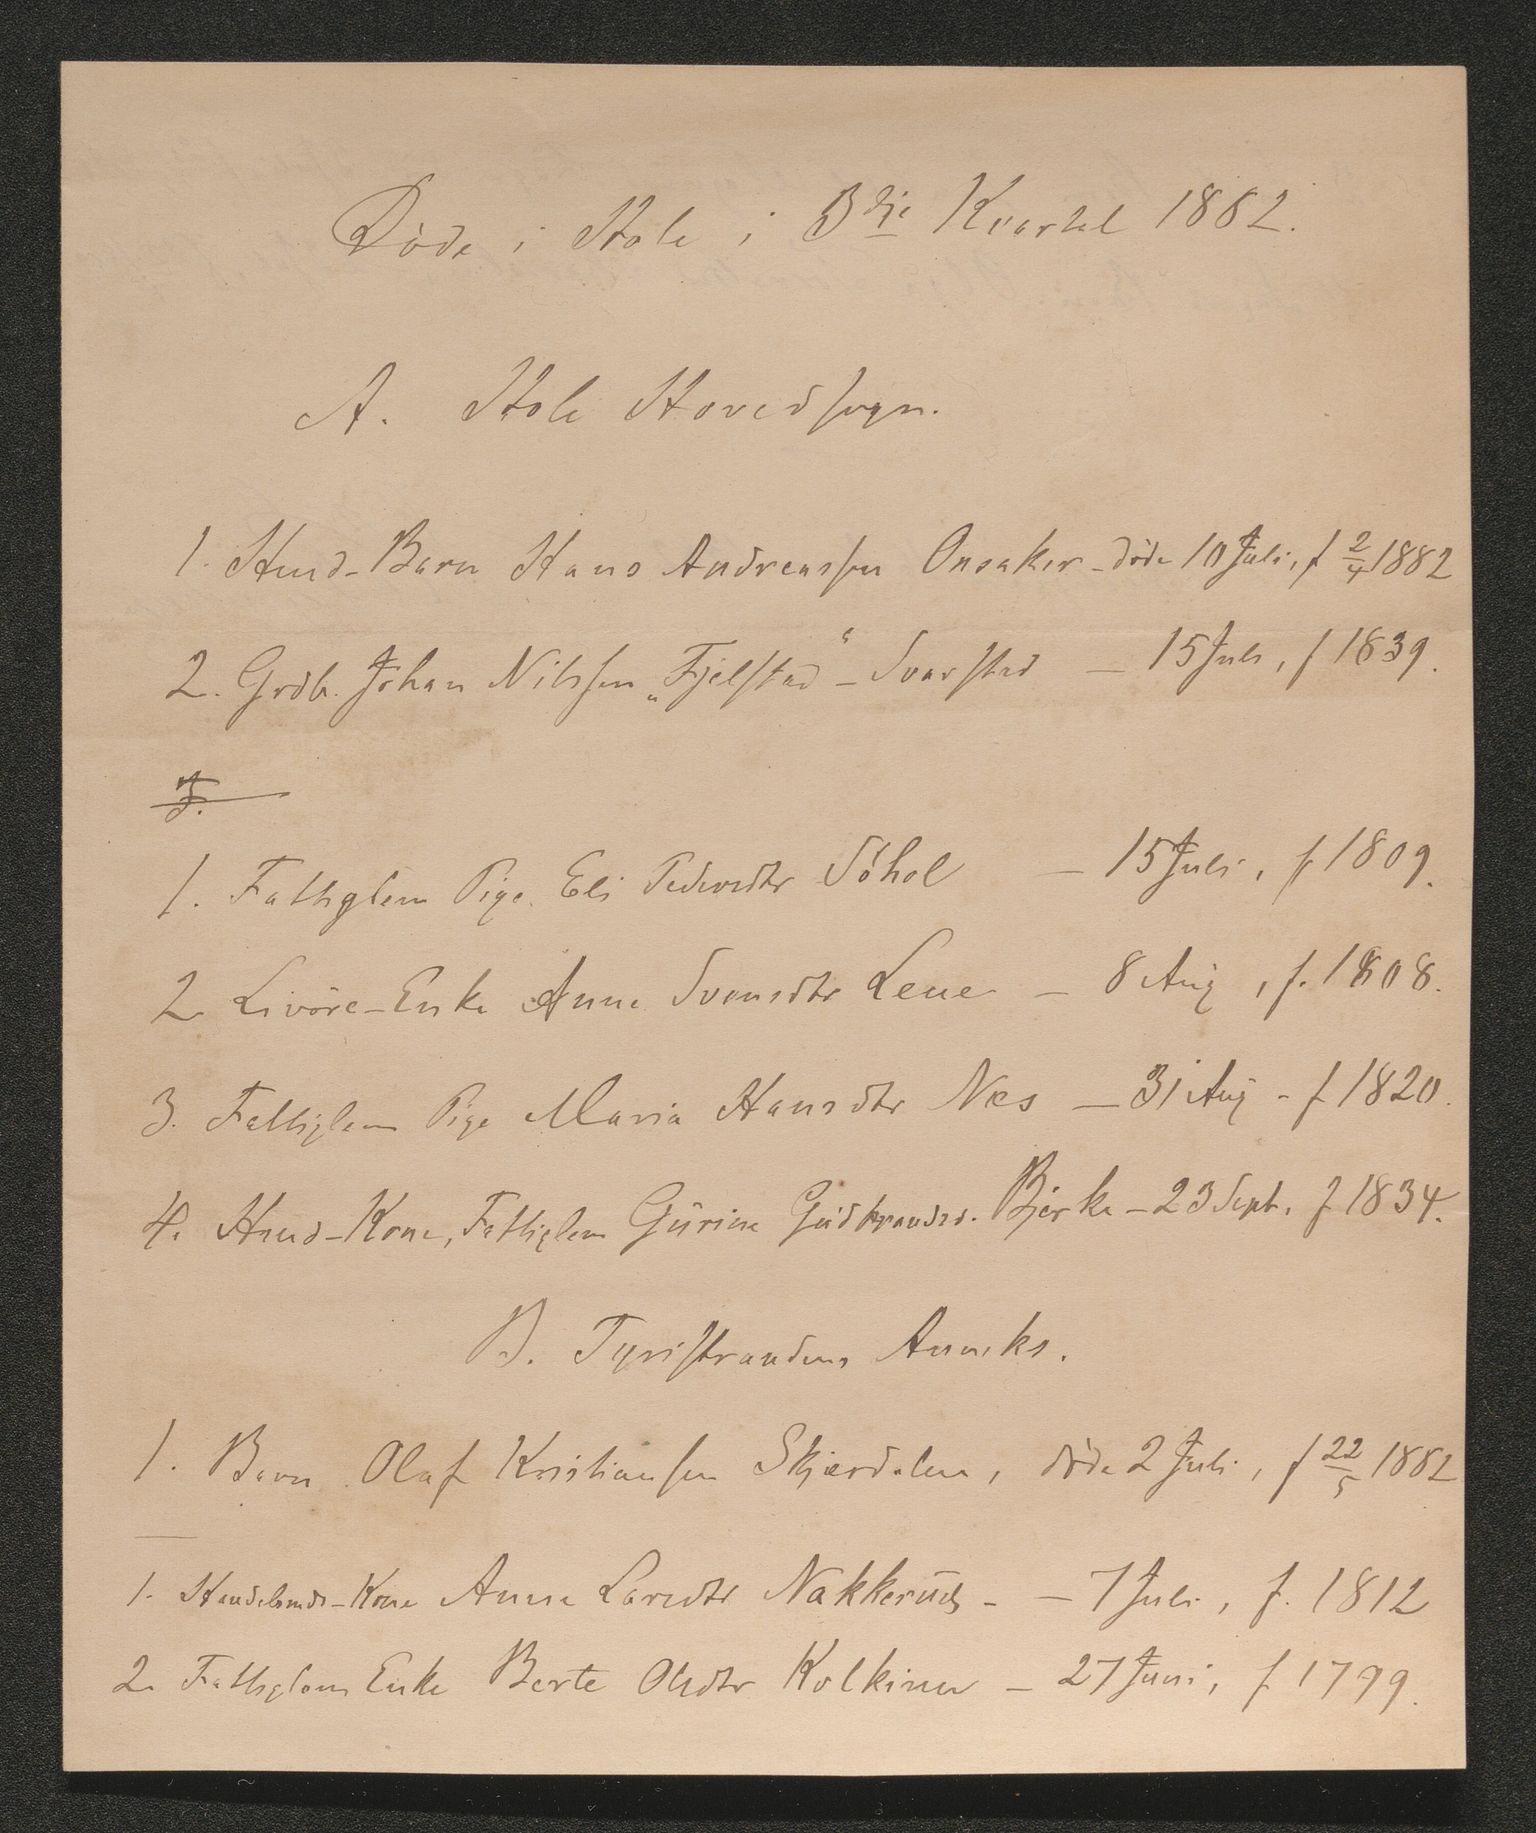 Døde i Hole i 3die Kvartal 1882.
A. Hole Hovedsogn.
1. Husd-Barn Hans Andreassen Onsaker - døde 10 Juli, f 2/4 1882
2. Grdb. Johan Nilssen „Fjelstad“ - Svarstad — 15 Juli, f 1839.
3.
1. Fattiglem Pige Eli Pedersdtr Søhol — 15 Juli, f 1809.
2 Livøre-Enke Anne Svensdtr Leine — 8 Aug, f. 1808.
3. Fattiglem Pige Maria Hansdtr Næs — 31 Aug - f 1820.
4. Husd-Kone, Fattiglem Gurine Gudbrandsd. Bjerke - 23 Sept. f 1834.
B. Tyristrandens Anneks.
1. Barn Olaf Kristiansen Skjerdalen, døde 2 Juli, f 22/5 1882
1. Handelsmds-Kone Anne Larsdtr Nakkerud - — 7 Juli, f. 1812
2. Fattiglem Enke Berte Olsdtr Kolkinn — 27 Juni, f 1799.